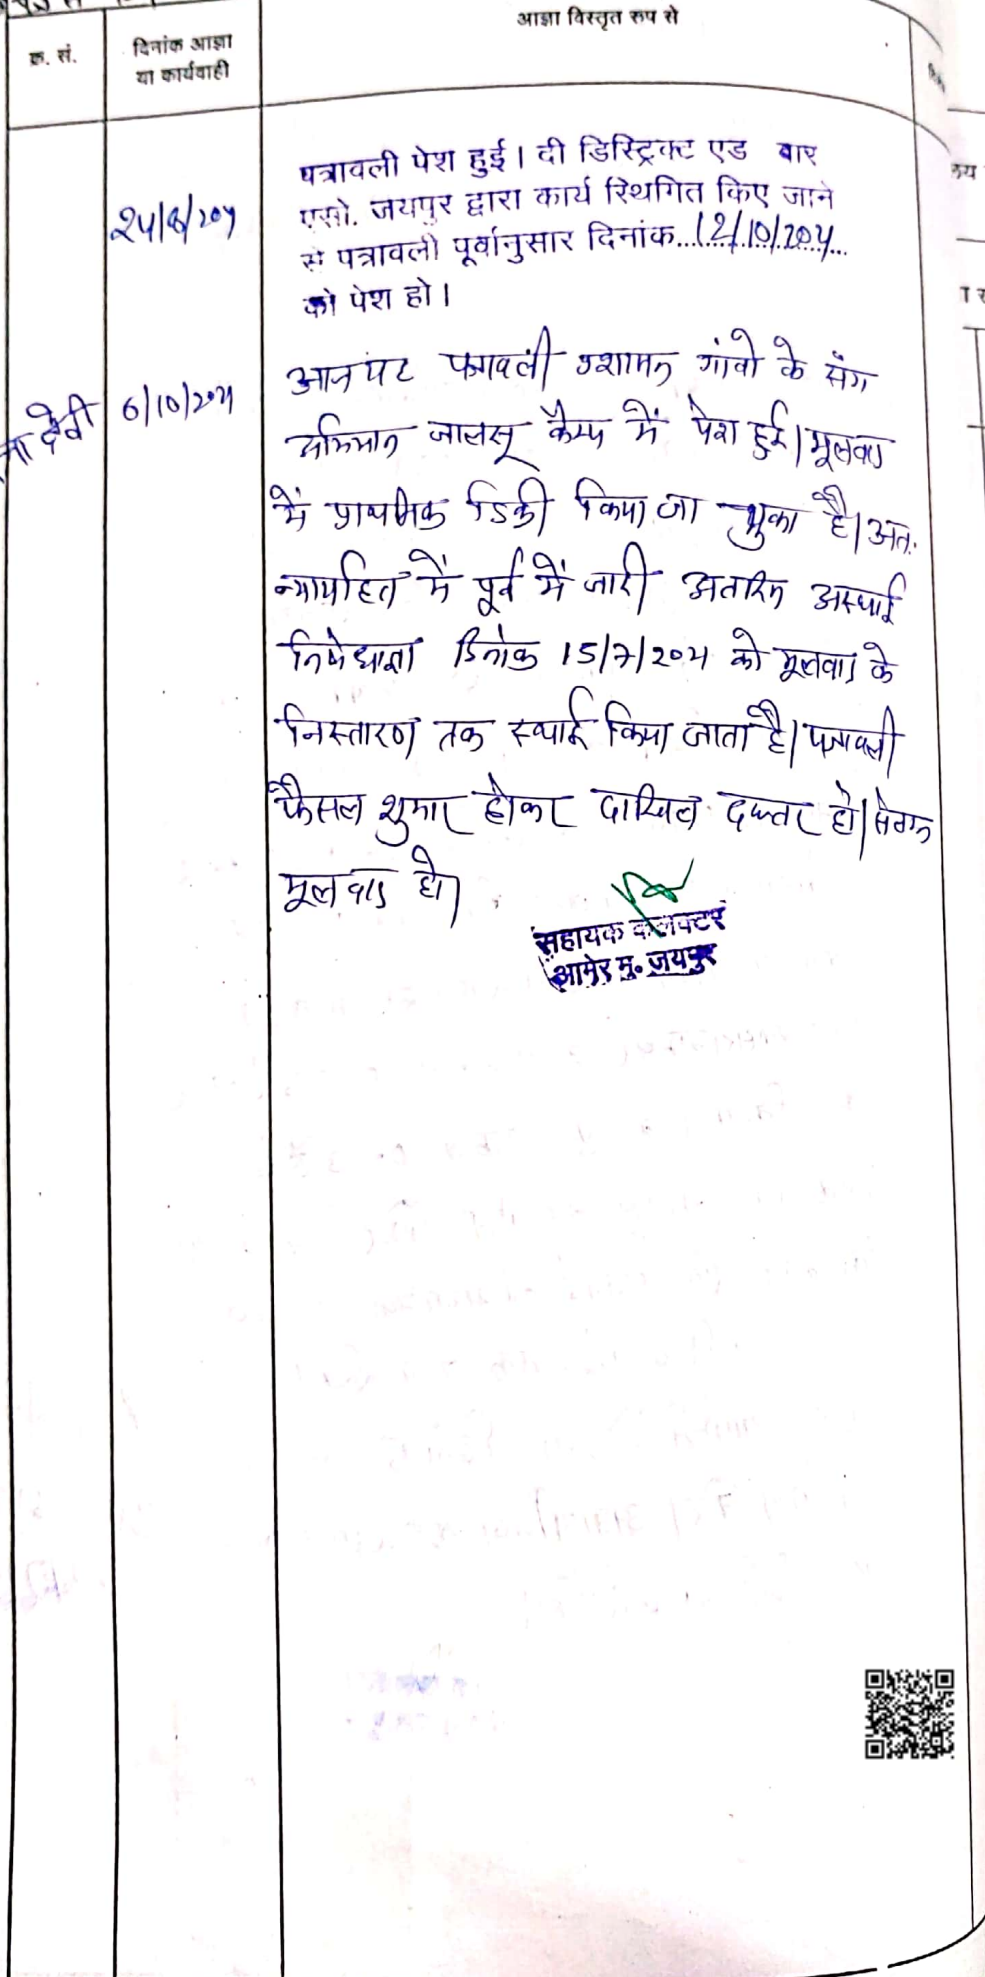 आज्ञा विस्तृत रुप से
क्र. सं.
दिनांक आज्ञा
या कार्यवाही
पत्रावली पेश हुई। दी डिस्ट्रिक्ट एड बार
एसो. जयपुर द्वारा कार्य स्थिगित किए जाने
से पत्रावली पूर्वानुसार दिनांक...12/10/204...
को पेश हो।
6/10/204
आज पत्रावली प्रशासन गांवो के संग
अभियान जालसू कैम्प में पेश हुई। मूलवाद
में प्राथमिक डिक्री किया जा चुका है। अतः
न्यायहित में पूर्व में जारी अंतरिम अस्थाई
निषेधाज्ञा दिनांक 15/7/204 को मूलवाद के
निस्तारण तक स्थाई किया जाता है। पत्रावली
फैसल शुमार होकर दाखिल दफ्तर हो। संलग्न
मूल वाद हो।
सहायक कलक्टर
आमेर मु. जयपुर
देवी